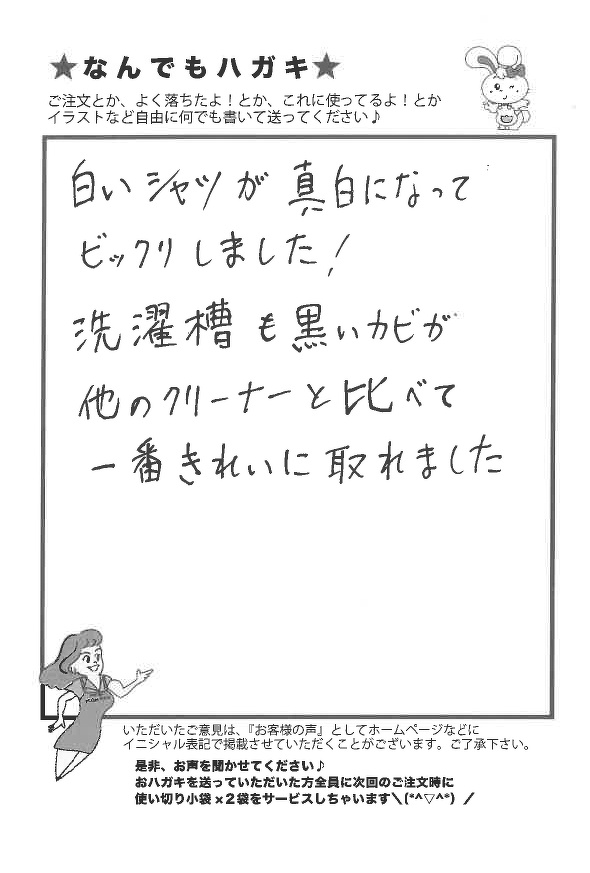 ★なんでもハガキ★
ご注文とか、よく落ちたよ！とか、これに使ってるよ！とか
イラストなど自由に何でも書いて送ってください♪
白いシャツが真白になって
ビックリしました！
洗濯槽も黒いカビが
他のクリーナーと比べて
一番きれいに取れました
いただいたご意見は、『お客様の声』としてホームページなどに
イニシャル表記で掲載させていただくことがございます。ご了承下さい。
是非、お声を聞かせてください♪
おハガキを送っていただいた方全員に次回のご注文時に
使い切り小袋×2袋をサービスしちゃいます＼(*^▽^*)／